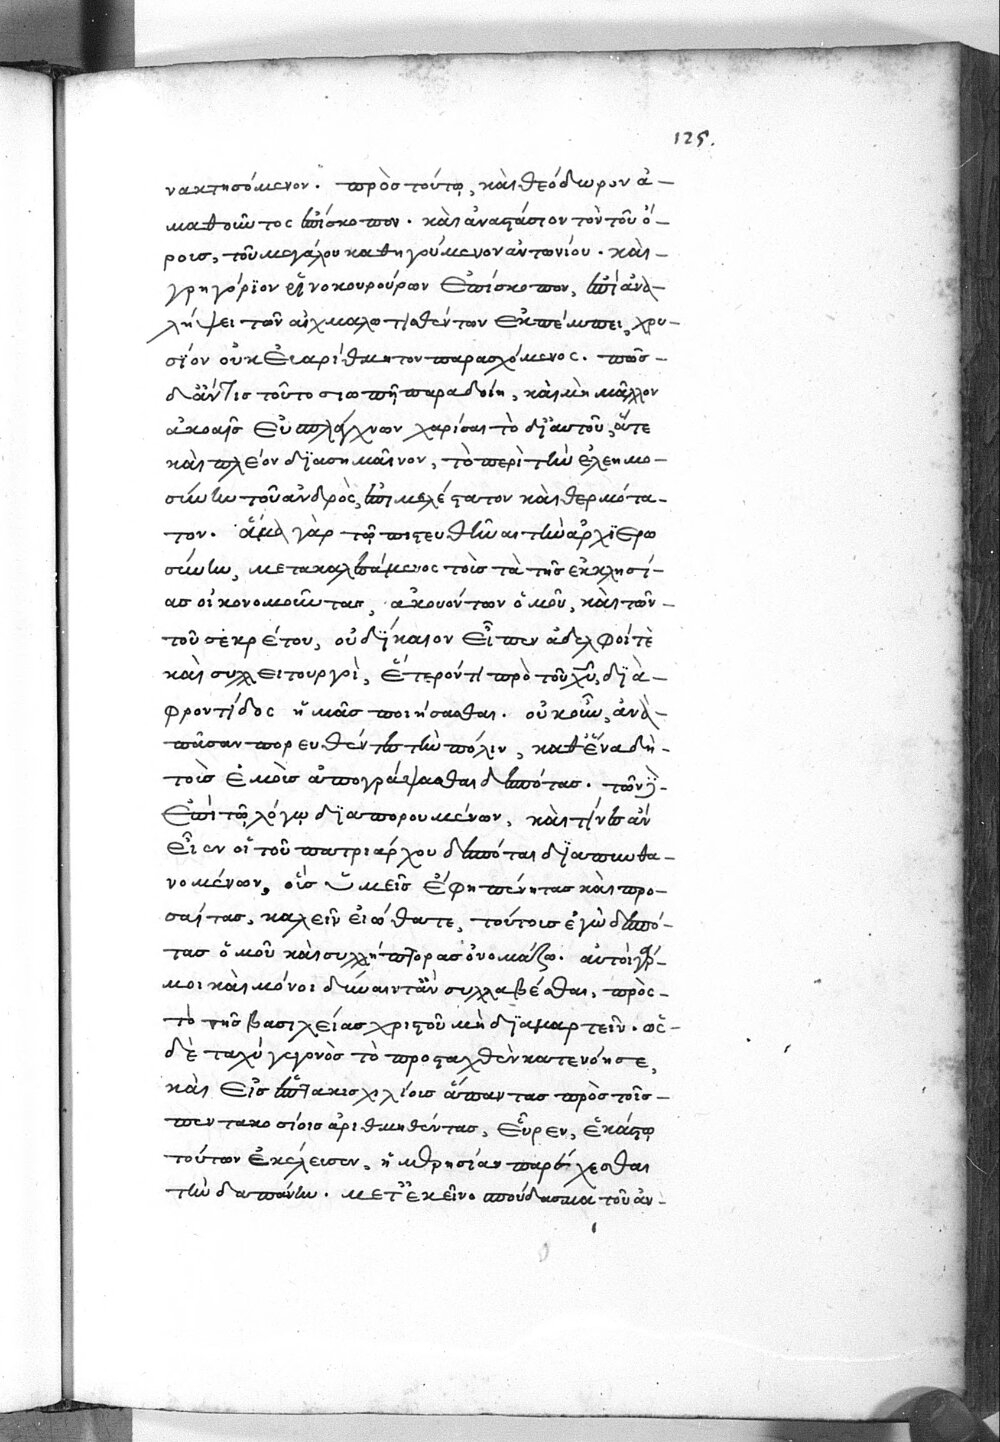 125.
νακτησόμενον. πρὸς τούτῳ, καὶ θεόδωρον ἀ-
μαθοῦντος ἐπίσκοπον. καὶ ἀναστάσιον τὸν τοῦ ὄ-
ρους, τοῦ μεγάλου καθηγούμενον ἀντωνίου. καὶ
γρηγόριον ῥινοκουρούρων ἐπίσκοπον, ἐπὶ ἀνα-
λήψει τῶν αἰχμαλωτισθέντων ἐκπέμπει, χρυ-
σίον οὐκ εὐαρίθμητον παρασχόμενος. πῶς
δ' ἄν τις τοῦτο σιωπῇ παραδοίη, καὶ μὴ μᾶλλον
ἀκοαῖς εὐσπλάγχνων χαρίσαι τὸ δι' αὐτοῦ, ἅτε
καὶ πλέον διασημαῖνον, τὸ περὶ τὴν ἐλεημο-
σύνην τοῦ ἀνδρὸς, ἐπιμελέστατον καὶ θερμότα-
τον. ἅμα γὰρ τῷ πιστευθῆναι τὴν ἀρχιερω
σύνην, μετακαλεσάμενος τοὺς τὰ τῆς ἐκκλησί-
ας οἰκονομοῦντας, ἀκουόντων ὁμοῦ, καὶ τῶν
τοῦ σεκρέτου, οὐ δίκαιον εἶπεν ἀδελφοί τὲ
καὶ συλλειτουργοὶ, ἕτερόν τι πρὸ τοῦ χυ, διὰ
φροντίδος ἡμᾶς ποιήσασθαι. οὐκοῦν, ἀνὰ
πᾶσαν πορευθέντες τὴν πόλιν, καθ' ἕνα δὴ
τοὺς ἐμοὺς ἀπογράψασθαι δεσπότας. τῶν δὲ
ἐπὶ τῷ λόγῳ διαπορουμένων, καὶ τίνες ἂν
εἶεν οἱ τοῦ πατριάρχου δεσπόται διαπυνθα-
νομένων, οὓς ὑμεῖς ἔφη πένητας καὶ προ-
σαίτας, καλεῖν εἰώθατε, τούτους ἐγὼ δεσπό-
τας ὁμοῦ καὶ συλλήπτορας ὀνομάζω. αὐτοὶ γάρ
μοι καὶ μόνοι δύναιντ' ἂν συλλαβέσθαι, πρὸς
τὸ τῆς βασιλείας χριστοῦ μὴ διαμαρτεῖν. ὡς
δὲ ταχὺ γεγονὸς τὸ προσταχθὲν κατενόησε,
καὶ εἰς ἑπτακισχιλίους ἅπαντας πρὸς τοῖς
πεντακοσίοις ἀριθμηθέντας, εὗρεν, ἑκάστῳ
τούτων ἐκέλευσεν, ἡμερησίαν παρέχεσθαι
τὴν δαπάνην. μετ' ἐκεῖνο σπούδασμα τοῦ ἀν-